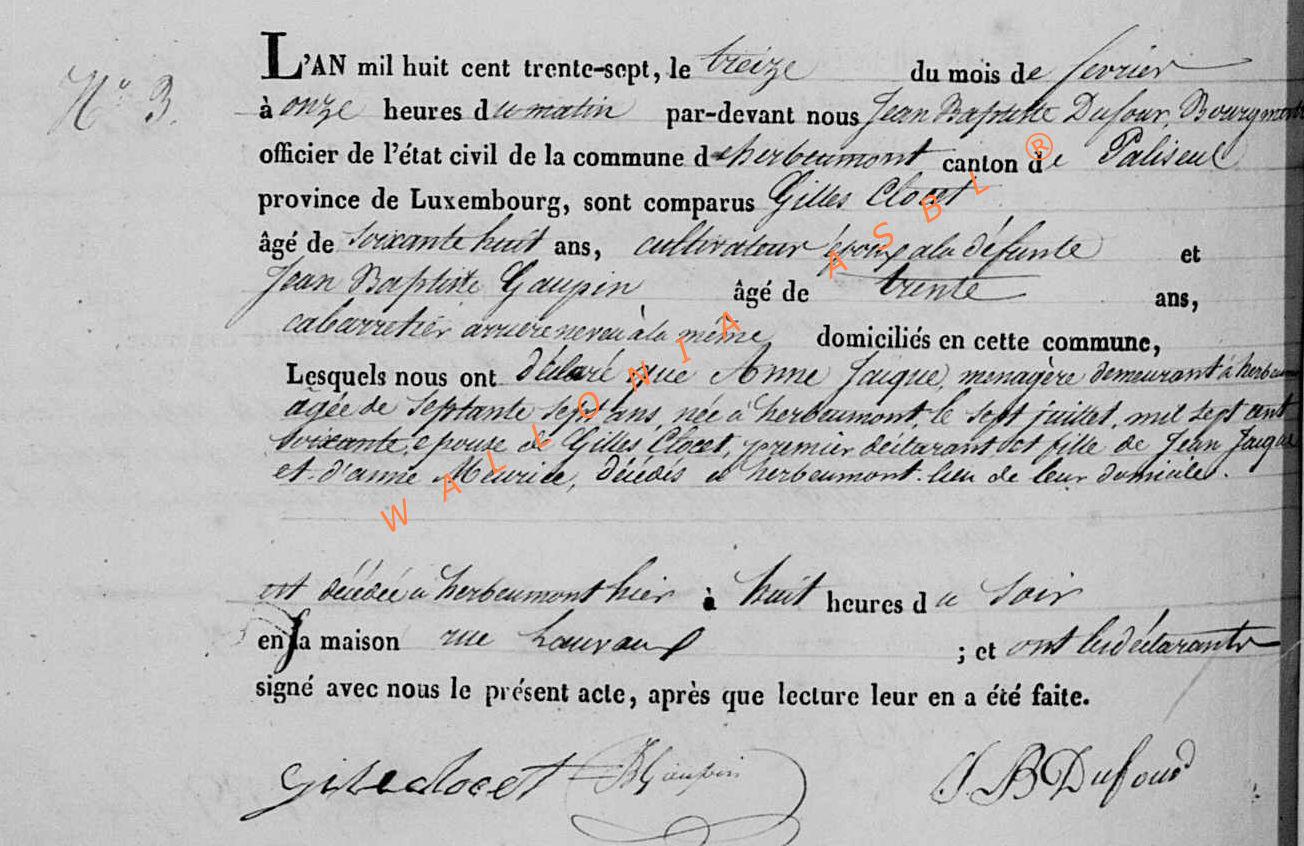 N° 3.
L'AN mil huit cent trente-sept, le treize du mois de fevrier
à onze heures du matin par-devant nous Jean Baptiste Dufour, Bourgmestre
officier de l'état civil de la commune de herbeumont canton de Paliseul
province de Luxembourg, sont comparus Gilles Clocet
âgé de soixante huit ans, cultivateur époux a la défunte et
Jean Baptiste Gaupin âgé de trente ans,
cabarretier arriere neveu à la même domiciliés en cette commune,
Lesquels nous ont déclaré que Anne Jaique, menagère demeurant à herbeum
agée de septante sept ans, née à herbeumont, le sept juillet, mil sept cent
soixante, epouse de Gilles Clocet, premier déclarant et fille de Jean Jaique
et d'anne Meurice, décédés à herbeumont lieu de leur domicile.
est décédée a herbeumont hier à huit heures du soir
en la maison rue ; et ont les déclarants
signé avec nous le présent acte, après que lecture leur en a été faite.
Gille clocet JB Gaupin J. B Dufour
WALLONIA ASBL ®